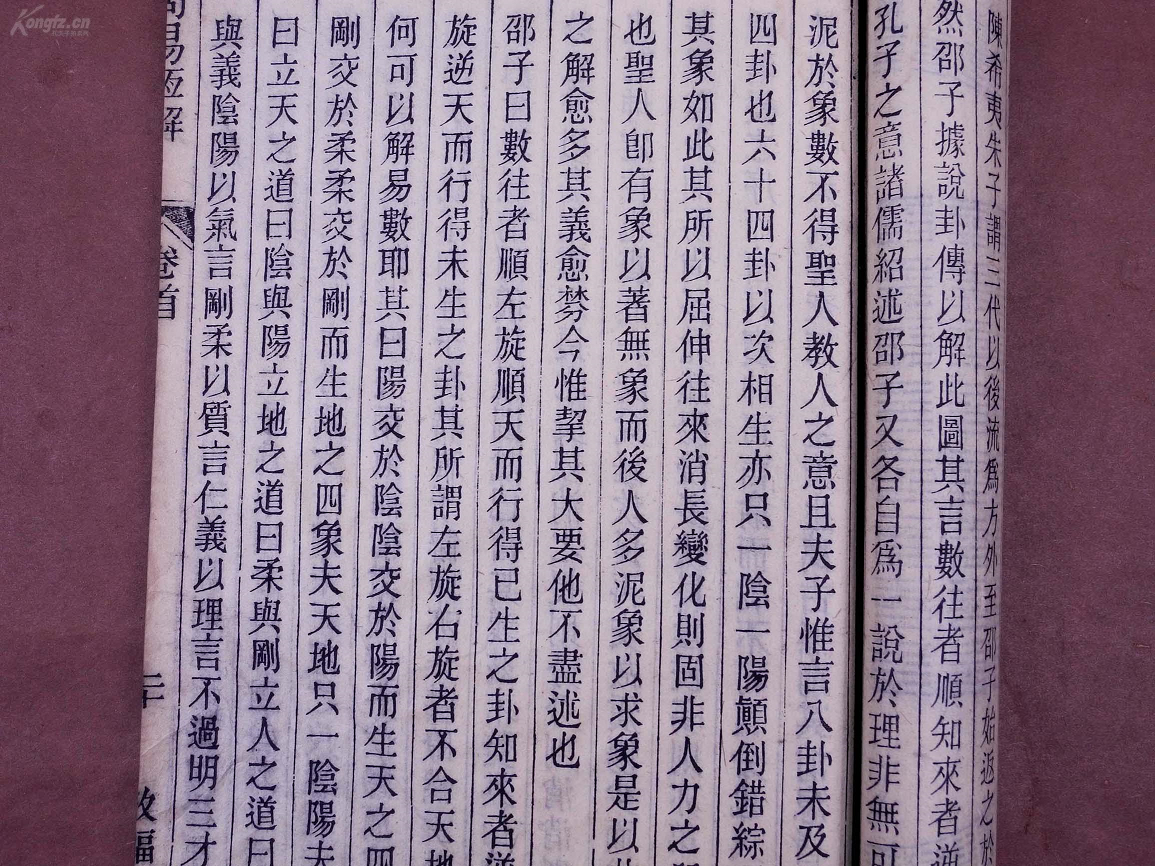 陳希夷朱子謂三代以後流爲方外至邵子始返之於
然邵子據說卦傳以解此圖其言數往者順知來者逆
孔子之意諸儒紹述邵子又各自爲一說於理非無可
泥於象數不得聖人教人之意且夫子惟言八卦未及
四卦也六十四卦以次相生亦只一陰一陽顚倒錯綜
其象如此其所以屈伸往來消長變化則固非人力之
也聖人卽有象以著無象而後人多泥象以求象是以
之解愈多其義愈棼今惟挈其大要他不盡述也
邵子曰數往者順左旋順天而行得已生之卦知來者逆
旋逆天而行得未生之卦其所謂左旋右旋者不合天地
何可以解易數耶其曰陽交於陰陰交於陽而生天之四
剛交於柔柔交於剛而生地之四象夫天地只一陰陽夫
曰立天之道曰陰與陽立地之道曰柔與剛立人之道曰
與義陰陽以氣言剛柔以質言仁義以理言不過明三才
周易恆解
卷首
二
致福
Kongfz.cn